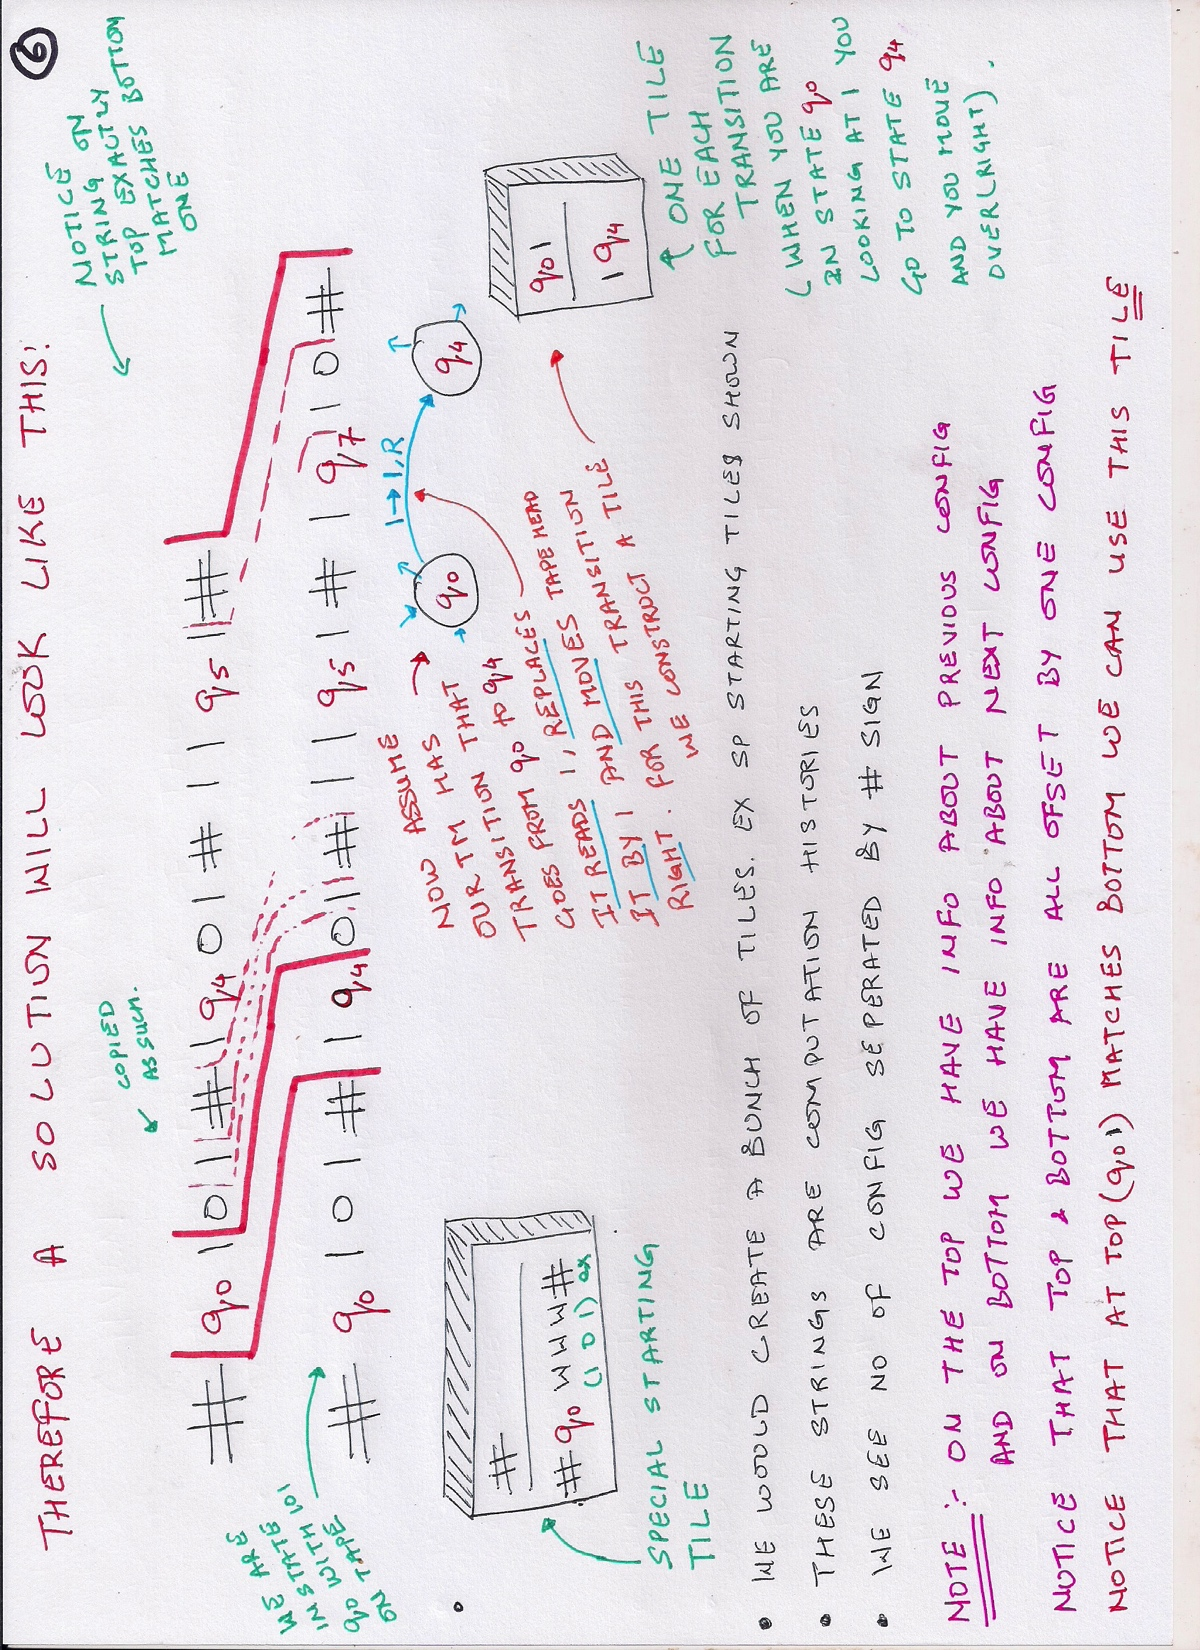 6
THEREFORE A SOLUTION WILL LOOK LIKE THIS:
NOTICE ON
STRING EXACTLY
TOP EXACTLY BOTTOM
MATCHES
ONE
COPIED
AS SUCH.
# q0 1 0 1 # 1 q4 0 1 # 1 1 q5 1 #
# q0 1 0 1 # 1 q4 0 1 # 1 1 q5 1 # 1 q7 1 0 #
WE ARE
IN STATE
q0 WITH 101
ON TAPE
#
# q0 W W W #
(1 0 1) ex
SPECIAL STARTING
TILE
NOW ASSUME
OUR TM HAS
TRANSITION THAT
GOES FROM q0 to q4
IT READS 1, REPLACES
IT BY 1 AND MOVES TAPE HEAD
RIGHT. FOR THIS TRANSITION
WE CONSTRUCT A TILE
q0
1→1,R
q4
q0 1
1 q4
↑ ONE TILE
FOR EACH
TRANSITION
(WHEN YOU ARE
IN STATE q0
LOOKING AT 1 YOU
GO TO STATE q4
AND YOU MOVE
OVER RIGHT).
• WE WOULD CREATE A BUNCH OF TILES. EX SP STARTING TILES SHOWN
• THESE STRINGS ARE COMPUTATION HISTORIES
• WE SEE NO OF CONFIG SEPERATED BY # SIGN
NOTE :- ON THE TOP WE HAVE INFO ABOUT PREVIOUS CONFIG
AND ON BOTTOM WE HAVE INFO ABOUT NEXT CONFIG
NOTICE THAT TOP & BOTTOM ARE ALL OFSET BY ONE CONFIG
NOTICE THAT AT TOP (q01) MATCHES BOTTOM WE CAN USE THIS TILE